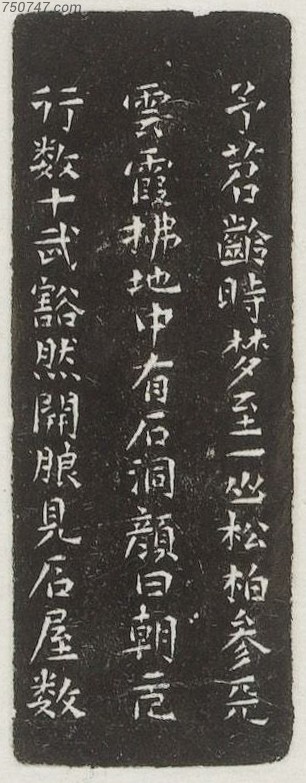 750747.com
予苕齡時梦至一山松柏參天
雲霞拂地中有石洞顔曰朝元
行数十武豁然開朖見石屋数